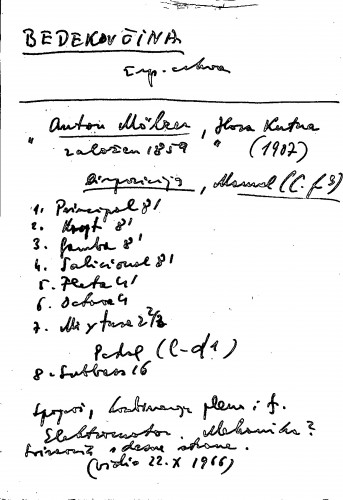 BEDEKOVČINA
Žup. crkva
" Anton Mölzer, Hora Kutna
založen 1859 " (1907)
Dispozicija, Manual (C-f3)
1. Principal 8'
2. Kopf 8'
3. Gamba 8'
4. Salicional 8'
5. Flata 4'
6. Octava 4
7. Mixtura 2 2/3
Pedal (C-d1)
8. Subbass 16
Spojevi, kombinacije pleno i f.
Elektromotor. Mehanika?
s desne strane.
(vidio 22.X 1966)